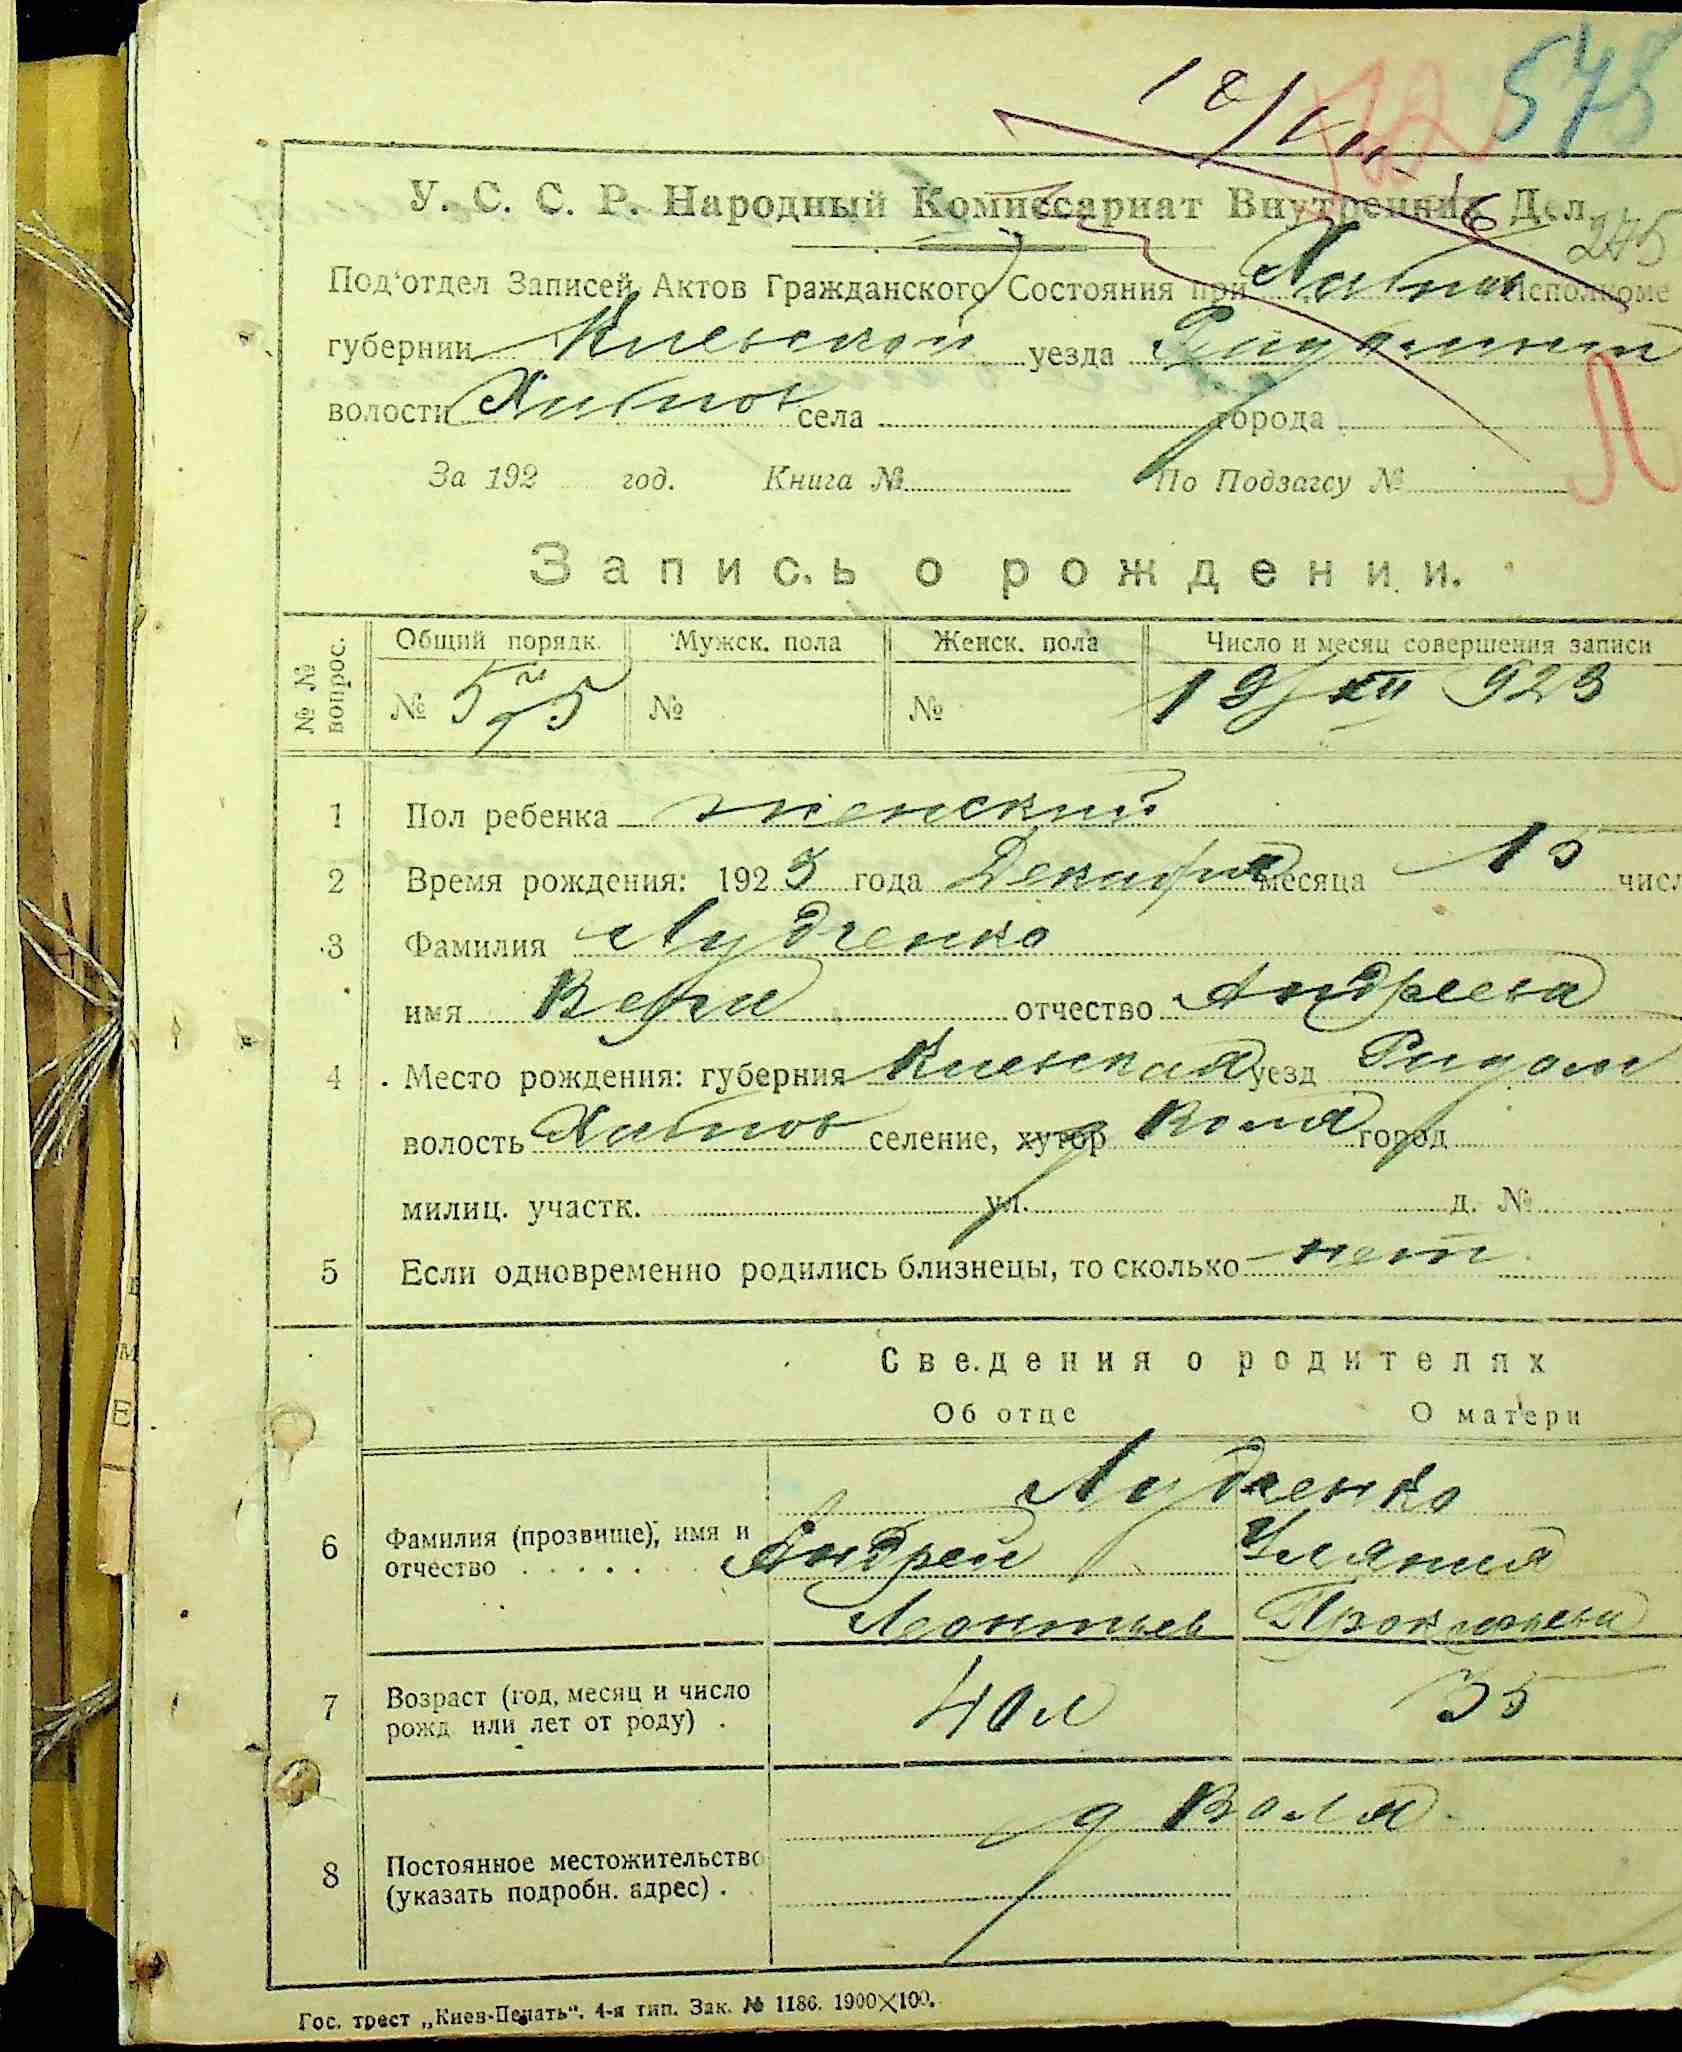 578
72
18/VIII
У. С. С. Р. Народный Комиссариат Внутренних Дел
245
Под'отдел Записей Актов Гражданского Состояния при Хабнов Исполкоме
губернии Киевской уезда
волости Хабнов села города
Л
За 192 год. Книга № По Подзагсу №
Запись о рождении.
№ № вопрос. Общий порядк. Мужск. пола Женск. пола Число и месяц совершения записи
№ 575 № № 19/XII 923
1 Пол ребенка женский
2 Время рождения: 1923 года Декабря месяца 15 числ
3 Фамилия Лудченко
имя Вера отчество Андреева
4 Место рождения: губерния Киевская уезд Радом
волость Хабнов селение, хутор Воля город
милиц. участк. ул. д. №
5 Если одновременно родились близнецы, то сколько нет
Сведения о родителях
Об отце О матери
Лудченко
6 Фамилия (прозвище), имя и Андрей Уляния
отчество Леонтьев Прокофьева
7 Возраст (год, месяц и число 40 л 35
рожд или лет от роду)
д Воля
8 Постоянное местожительство
(указать подробн. адрес)
Гос. трест „Киев-Печать“. 4-я тип. Зак. № 1186. 1900×100.